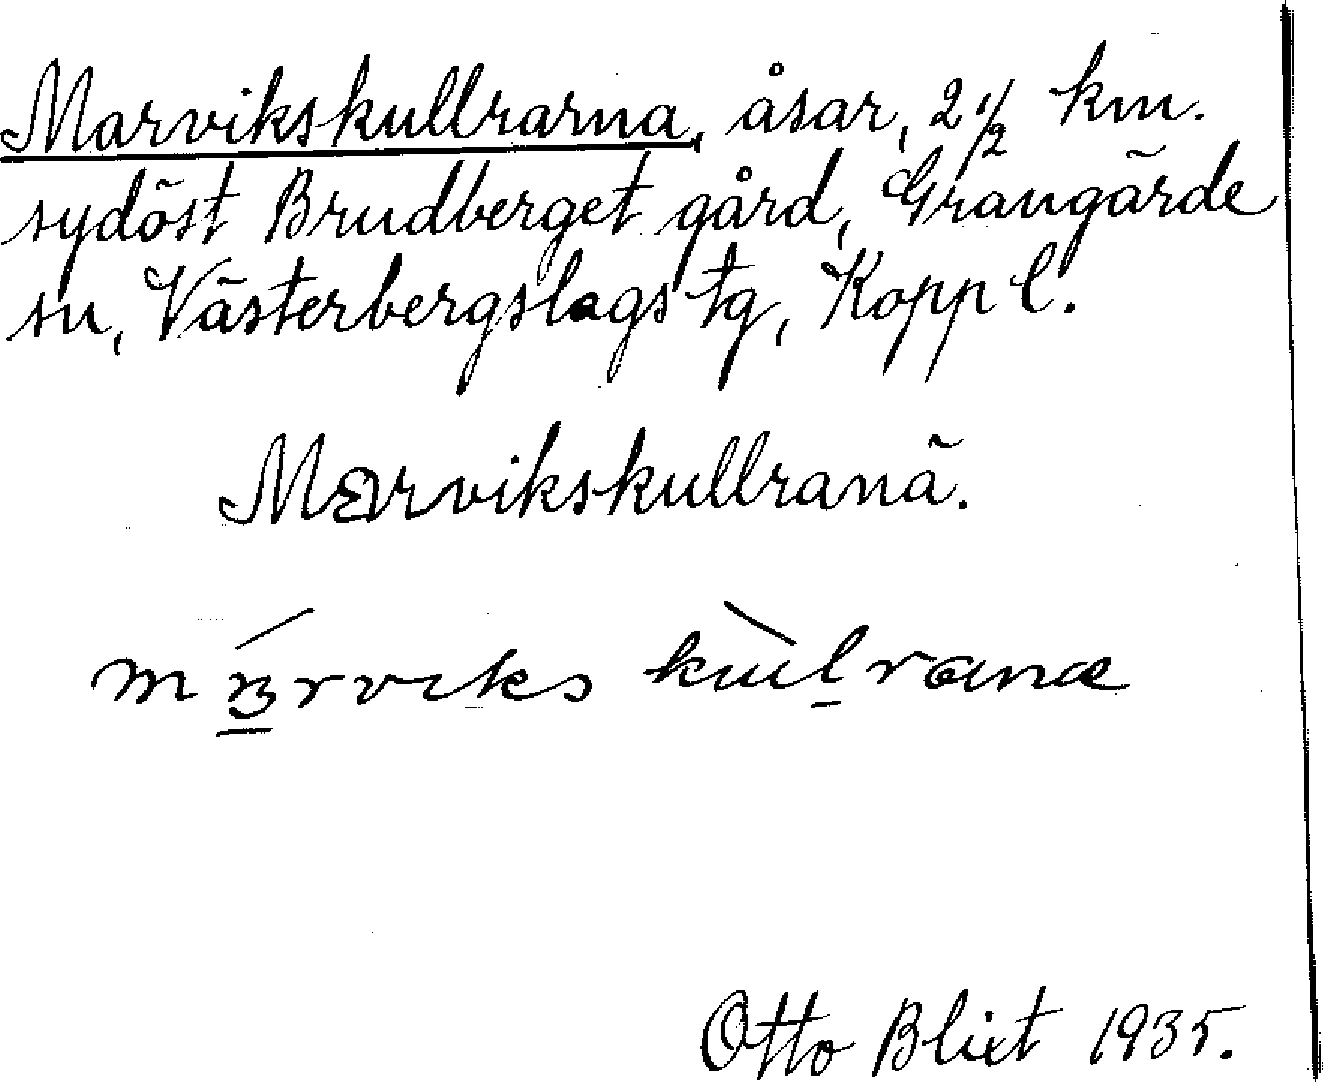 Marvikskullrarna, åsar, 2 1/2 km.
sydöst Brudberget gård, Grangärde
sn, Västerbergslags tg, Kopp l.
Marvikskullranä.
Otto Blixt 1935.